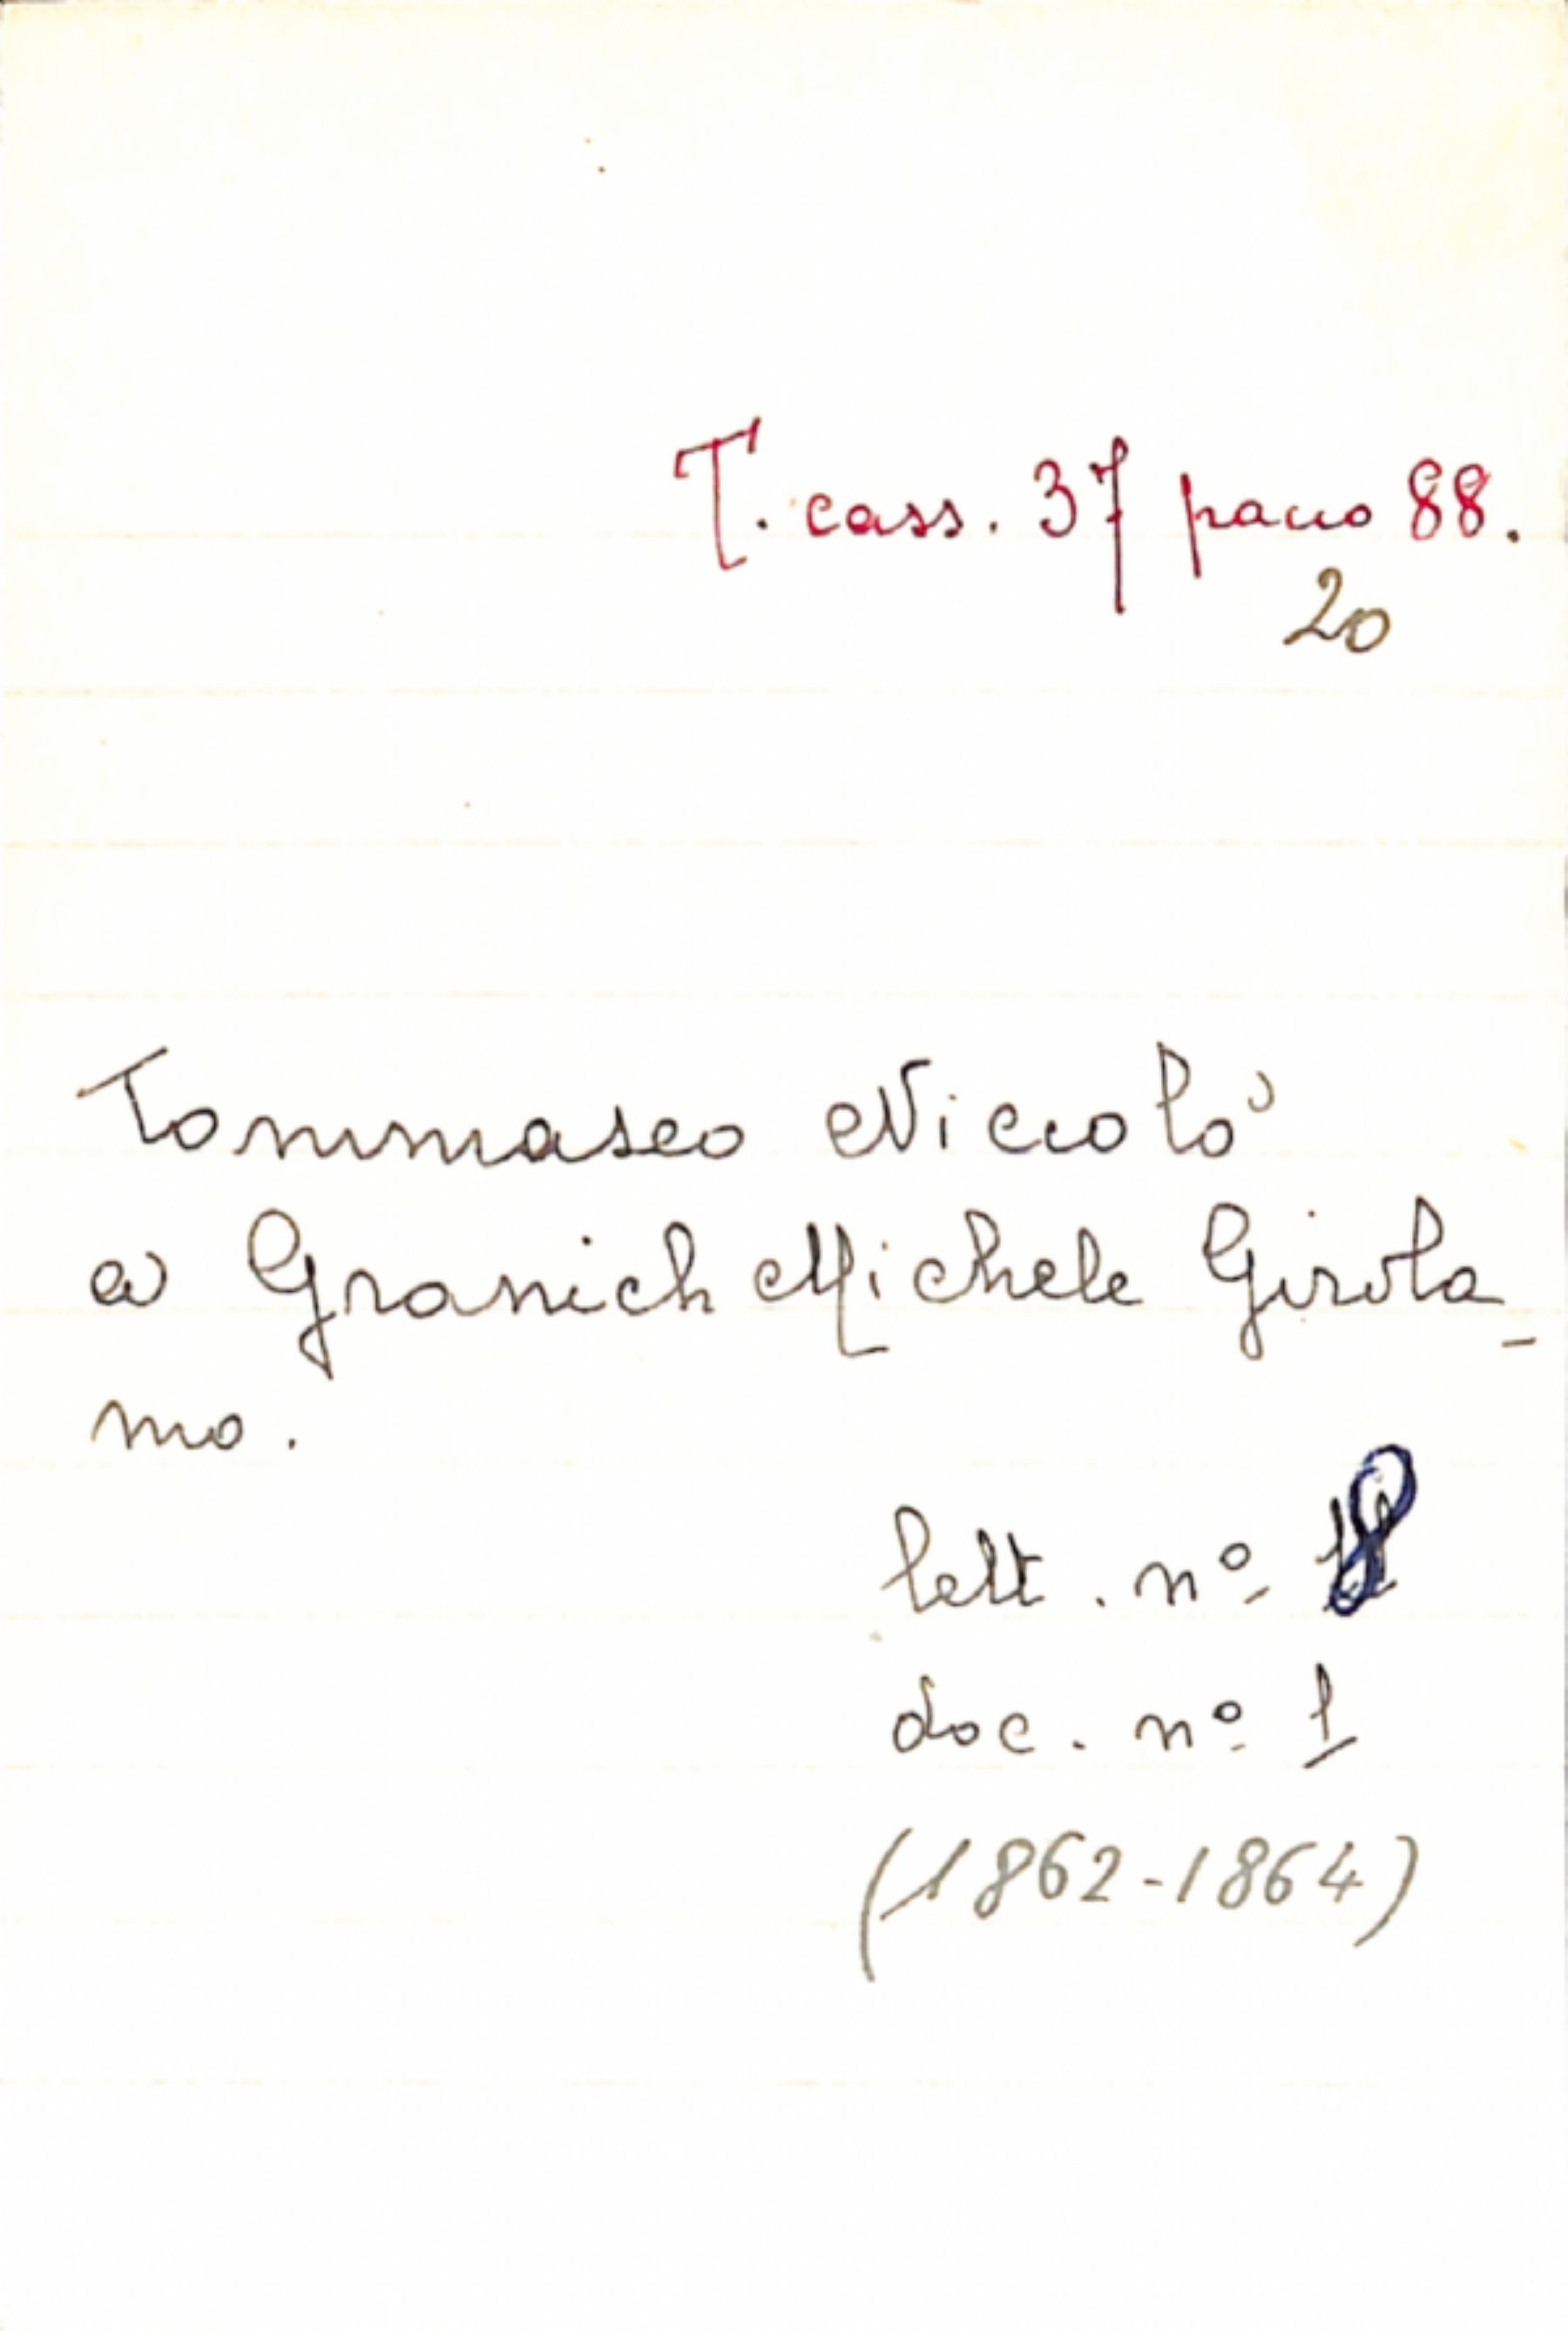 T. cass. 37 pacco 88.
20
Tommaseo Niccolò
a Granich Michele Girola-
mo.
lett. nº
doc. nº 1
(1862-1864)